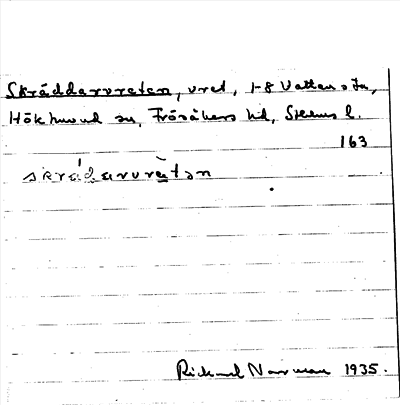 Skräddarvreten, vret, 1-8 Vattensta,
Hökhuvud sn, Frösåkers hd, Sthlms l.
163
skrádarvrètən
Rickard Norrman 1935.